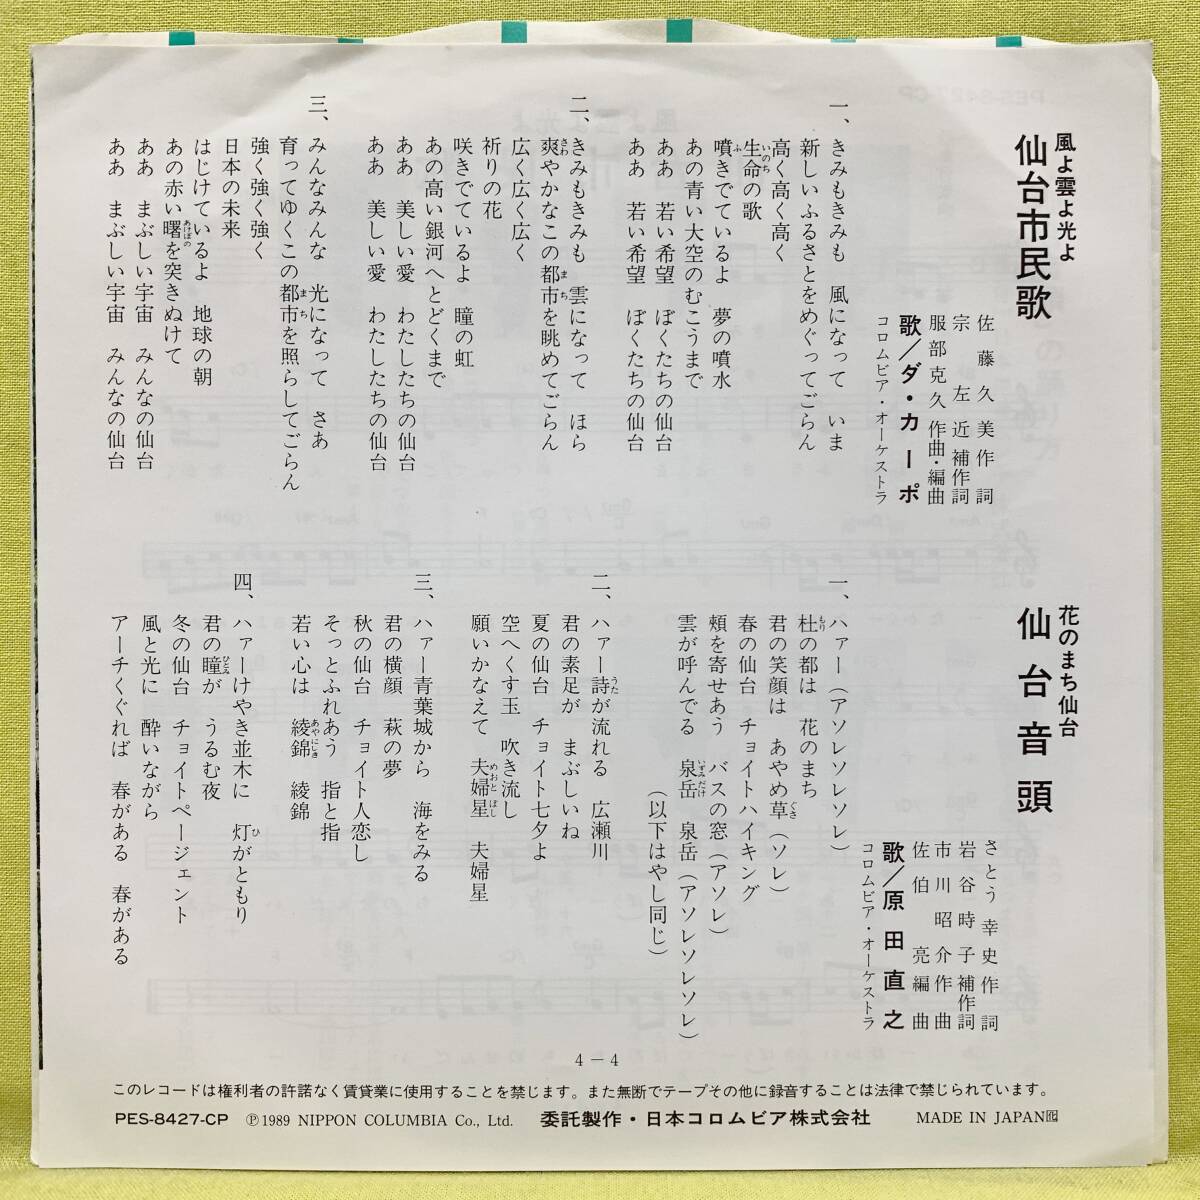 風よ雲よ光よ
仙台市民歌
佐藤久美作詞
宗左近補作詞
服部克久作曲・編曲
歌／ダ・カーポ
コロムビア・オーケストラ
一、きみもきみも　風になって　いま
新しいふるさとをめぐってごらん
高く高く高く
生命の歌
いのち
噴きでているよ　夢の噴水
ふ
あの青い大空のむこうまで
ああ　若い希望　ぼくたちの仙台
ああ　若い希望　ぼくたちの仙台
二、きみもきみも　雲になって　ほら
爽やかなこの都市を眺めてごらん
さわ
まち
広く広く広く
祈りの花
咲きでているよ　瞳の虹
あの高い銀河へとどくまで
ああ　美しい愛　わたしたちの仙台
ああ　美しい愛　わたしたちの仙台
三、みんなみんな　光になって　さあ
育ってゆくこの都市を照らしてごらん
まち
強く強く強く
日本の未来
はじけているよ　地球の朝
あの赤い曙を突きぬけて
あけぼの
ああ　まぶしい宇宙　みんなの仙台
ああ　まぶしい宇宙　みんなの仙台
花のまち仙台
仙台音頭
さとう幸史作詞
岩谷時子補作詞
市川昭介作曲
佐伯亮編曲
歌／原田直之
コロムビア・オーケストラ
一、ハァー（アソレソレソレ）
杜の都は　花のまち
もり
君の笑顔は　あやめ草（ソレ）
ぐさ
春の仙台　チョイトハイキング
頬を寄せあう　バスの窓（アソレ）
雲が呼んでる　泉岳　泉岳（アソレソレソレ）
いずみだけ
（以下はやし同じ）
二、ハァー詩が流れる　広瀬川
うた
君の素足が　まぶしいね
夏の仙台　チョイト七夕よ
空へくす玉　吹き流し
願いかなえて　夫婦星　夫婦星
めおとぼし
三、ハァー青葉城から　海をみる
君の横顔　萩の夢
秋の仙台　チョイト人恋し
そっとふれあう　指と指
若い心は　綾錦　綾錦
あやにしき
四、ハァーけやき並木に　灯がともり
ひ
君の瞳が　うるむ夜
ひとみ
冬の仙台　チョイトページェント
風と光に　酔いながら
アーチくぐれば　春がある　春がある
4－4
このレコードは権利者の許諾なく賃貸業に使用することを禁じます。また無断でテープその他に録音することは法律で禁じられています。
PES-8427-CP　Ⓟ1989 NIPPON COLUMBIA Co., Ltd.　委託製作・日本コロムビア株式会社　MADE IN JAPAN